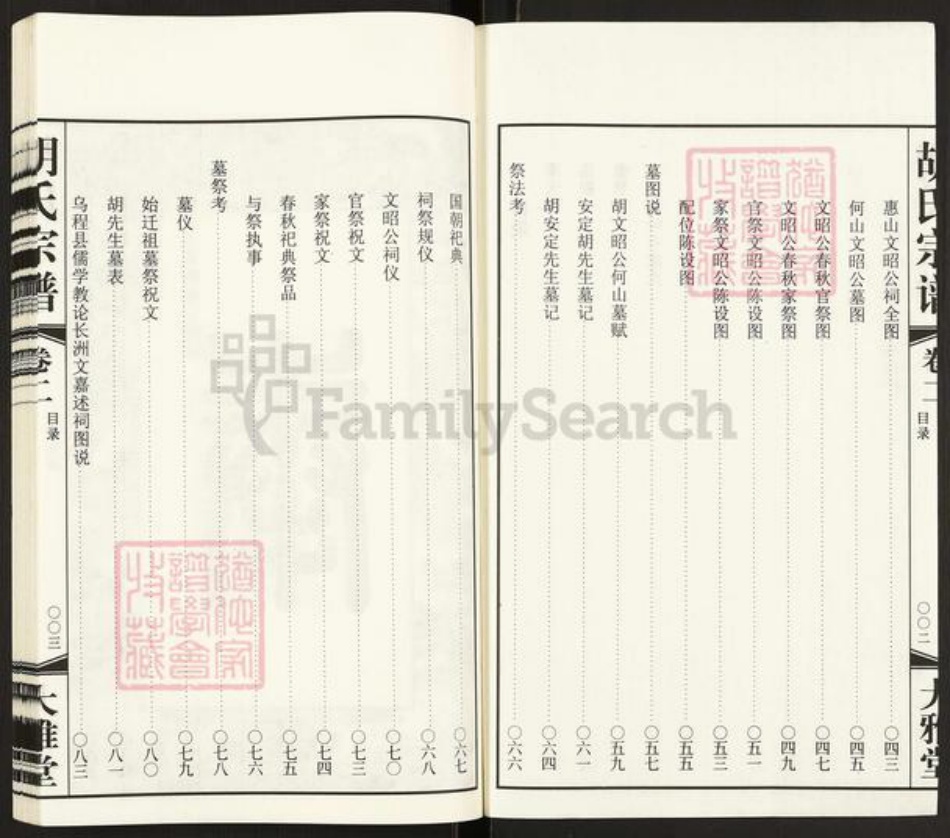 胡氏宗谱
卷二
目录
〇〇二
大雅堂
惠山文昭公祠全图 〇四三
何山文昭公墓图 〇四五
文昭公春秋官祭图 〇四七
文昭公春秋家祭图 〇四九
官祭文昭公陈设图 〇五一
家祭文昭公陈设图 〇五三
配位陈设图 〇五五
墓图说 〇五七
胡文昭公何山墓赋 〇五九
安定胡先生墓记 〇六一
胡安定先生墓记 〇六四
祭法考 〇六六
国朝祀典 〇六七
祠祭规仪 〇六八
文昭公祠仪 〇七〇
官祭祝文 〇七三
家祭祝文 〇七四
春秋祀典祭品 〇七五
与祭执事 〇七六
墓祭考 〇七八
墓仪 〇七九
始迁祖墓祭祝文 〇八〇
胡先生墓表 〇八一
乌程县儒学教论长洲文嘉述祠图说 〇八三
胡氏宗谱
卷二
目录
〇〇三
大雅堂
FamilySearch